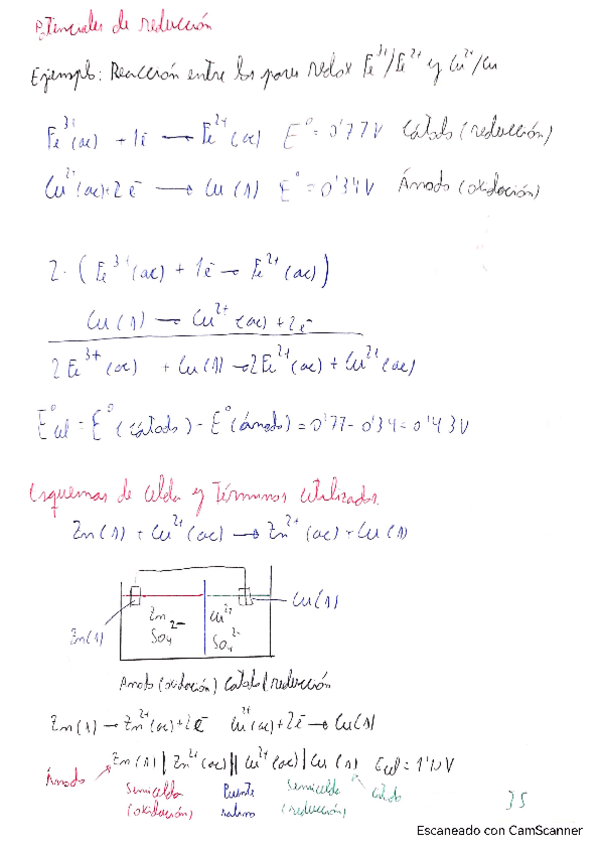 Potenciales de reducción
Ejemplo: Reacción entre los pares redox Fe³⁺/Fe²⁺ y Cu²⁺/Cu
Fe³⁺(ac) + 1e⁻ → Fe²⁺(ac) E° = 0'77V Cátodo (reducción)
Cu²⁺(ac) + 2e⁻ → Cu(s) E° = 0'34V Ánodo (oxidación)
2·(Fe³⁺(ac) + 1e⁻ → Fe²⁺(ac))
Cu(s) → Cu²⁺(ac) + 2e⁻
2Fe³⁺(ac) + Cu(s) → 2Fe²⁺(ac) + Cu²⁺(ac)
E°cel = E°(cátodo) - E°(ánodo) = 0'77 - 0'34 = 0'43V
Esquemas de celda y términos utilizados.
Zn(s) + Cu²⁺(ac) → Zn²⁺(ac) + Cu(s)
Cu(s)
Zn Cu²⁺
Zn(s) SO₄²⁻ SO₄²⁻
Ánodo (oxidación) Cátodo (reducción
Zn(s) → Zn²⁺(ac) + 2e⁻ Cu²⁺(ac) + 2e⁻ → Cu(s)
Zn(s) | Zn²⁺(ac) || Cu²⁺(ac) | Cu(s) Ecel = 1'10V
Ánodo Semicelda Puente Semicelda cátodo
(oxidación) salino (reducción)
35
Escaneado con CamScanner